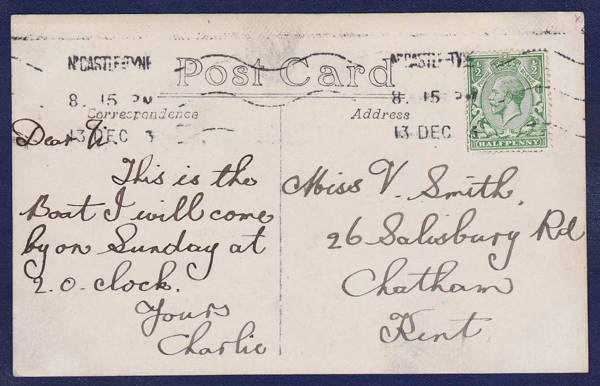 NCASTLE-TYNE
8. 15 PM
13 DEC 3
Post Card
NCASTLE-TY
8. 15 P
13 DEC
½ ½
HALFPENNY
Correspondence
Address
Dear
This is the
Boat I will come
by on Sunday at
2.o.clock.
Yours
Charlie
Miss V. Smith,
26 Salisbury Rd
Chatham
Kent